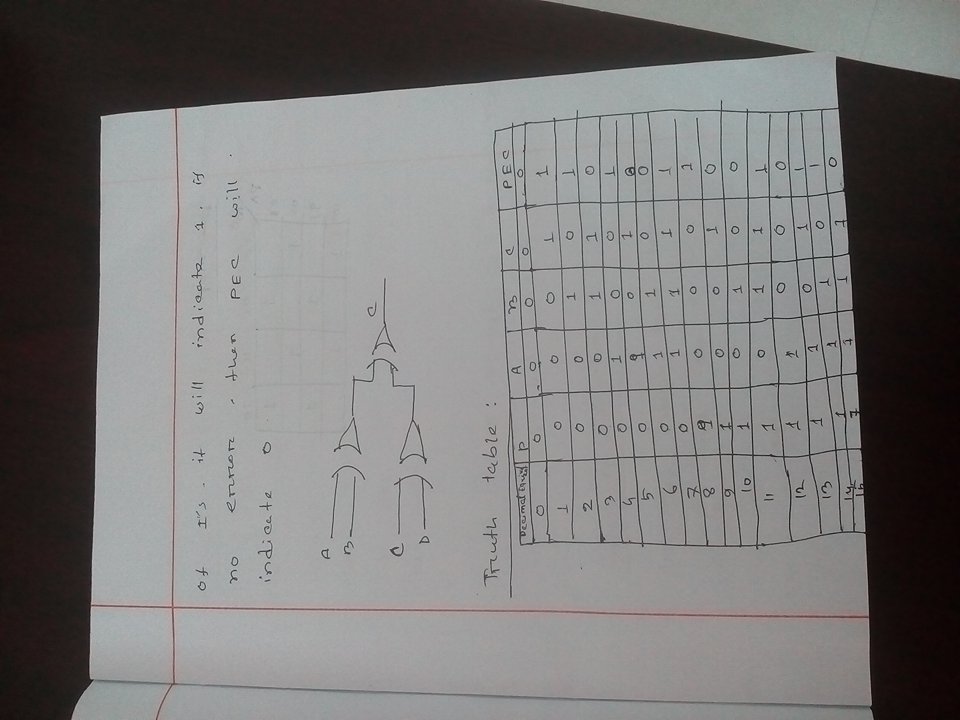 of 1's. it will indicate 1. if
no error. then PEC will
indicate 0
A
B
C
D
C
Truth table :
Decimal P A B C PEC
0 0 0 0 0 0
1 0 0 0 1 1
2 0 0 1 0 1
3 0 0 1 1 0
4 0 1 0 0 1
5 0 1 0 1 0
6 0 1 1 0 0
7 0 1 1 1 1
8 1 0 0 0 1
9 1 0 0 1 0
10 1 0 1 0 0
11 1 0 1 1 1
12 1 1 0 0 0
13 1 1 0 1 1
14 1 1 1 0 1
15 1 1 1 1 0